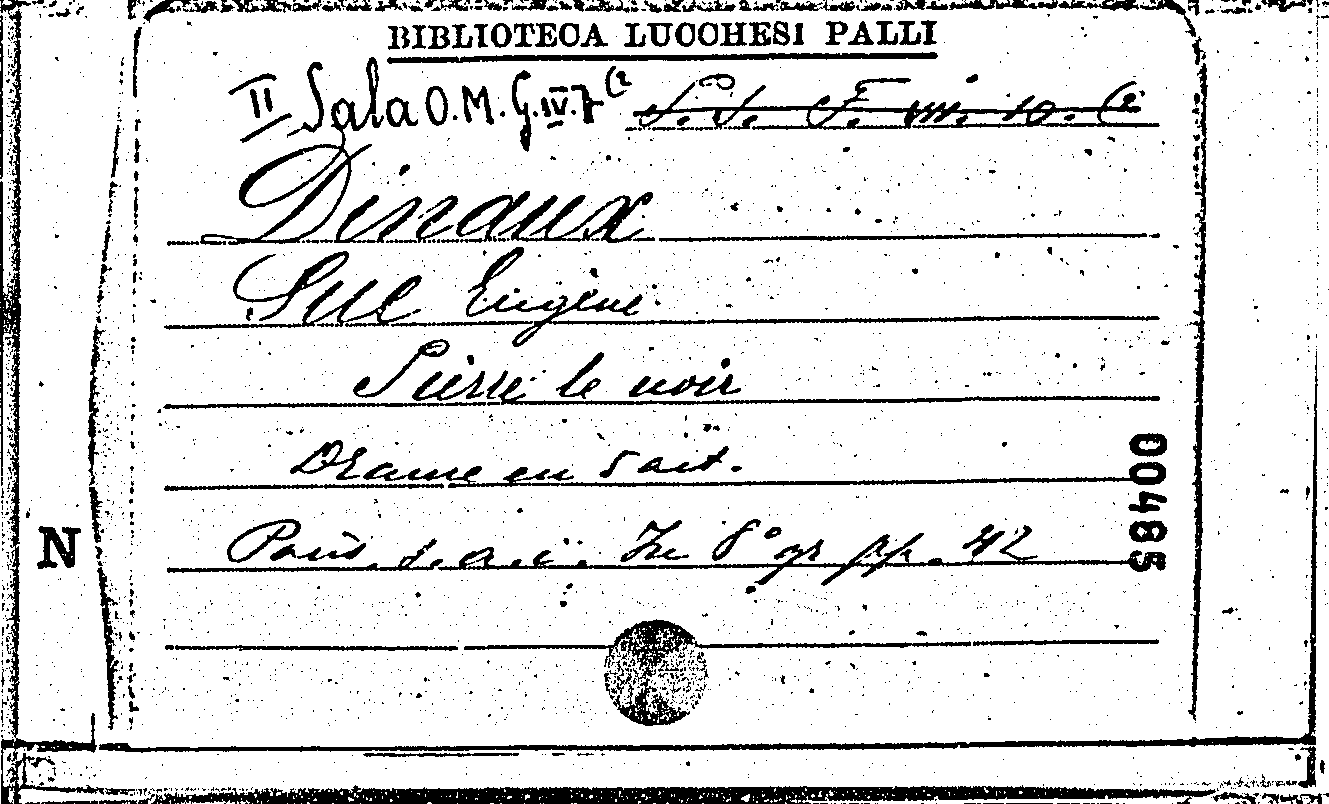 BIBLIOTECA LUCCHESI PALLI
II Sala O.M. G.IV.7(2 S. S. F. VIII. 10. (2
Dinaux
Sue Eugène
Pierre le noir
Drame en 5 act.
Paris. s.a.i. In 8° gr pp. 42
00485
N